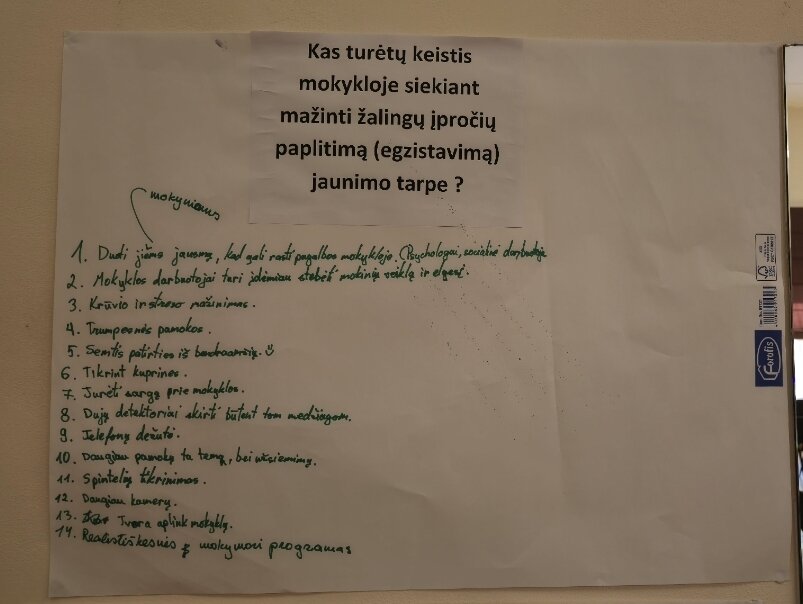 Kas turėtų keistis
mokykloje siekiant
mažinti žalingų įpročių
paplitimą (egzistavimą)
jaunimo tarpe ?
mokyniams
1. Duoti jiems jausmą, kad gali rasti pagalbos mokykloje. (Psychologai, socialiai darbuotoja
2. Mokyklos darbuotojai turi įdėmiau stebėti mokinių veiklą ir elgesį.
3. Krūvio ir streso mažinimas.
4. Trumpesnės pamokos.
5. Semtis patirties iš bendraamžių.
6. Tikrint kuprines.
7. Turėti sargą prie mokyklos.
8. Dujų detektoriai skirti būtent tom medžiagom.
9. Telefonų dežutė.
10. Daugiau pamokų ta temą, bei užsiėmimų.
11. Spintelių tikrinimas.
12. Daugiau kamerų.
13. Tvora aplink mokyklą.
14. Realistiškesnės mokymosi programas
Forofis